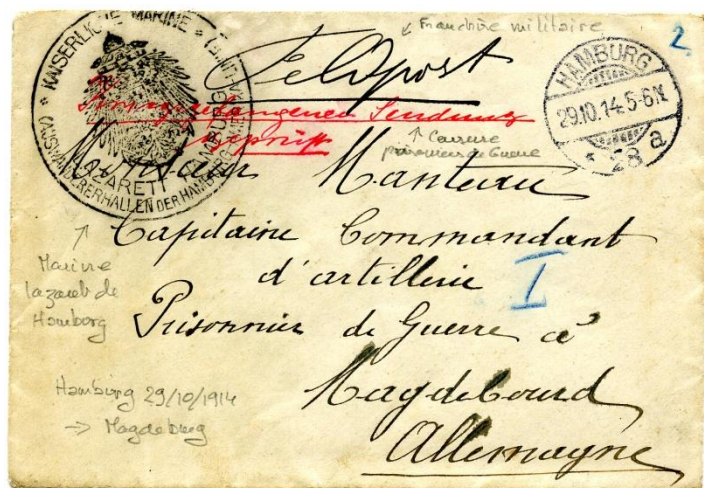 ↙ Franchise militaire
2.
Feldpost
KAISERLICHE MARINE
LAZARETT
AUSWANDERERHALLEN DER HAMBURG
HAMBURG
29.10.14.5-6N.
* 28 a
Kriegsgefangenen Sendung
Geprüft
↑ Censure
prisonniers de Guerre
Monsieur Manteau
Capitaine Commandant
d'artillerie
I
Prisonnier de Guerre à
Magdebourd
Allemagne
↗ Marine
lazarett de
Hamborg
Hamburg 29/10/1914
→ Magdeburg